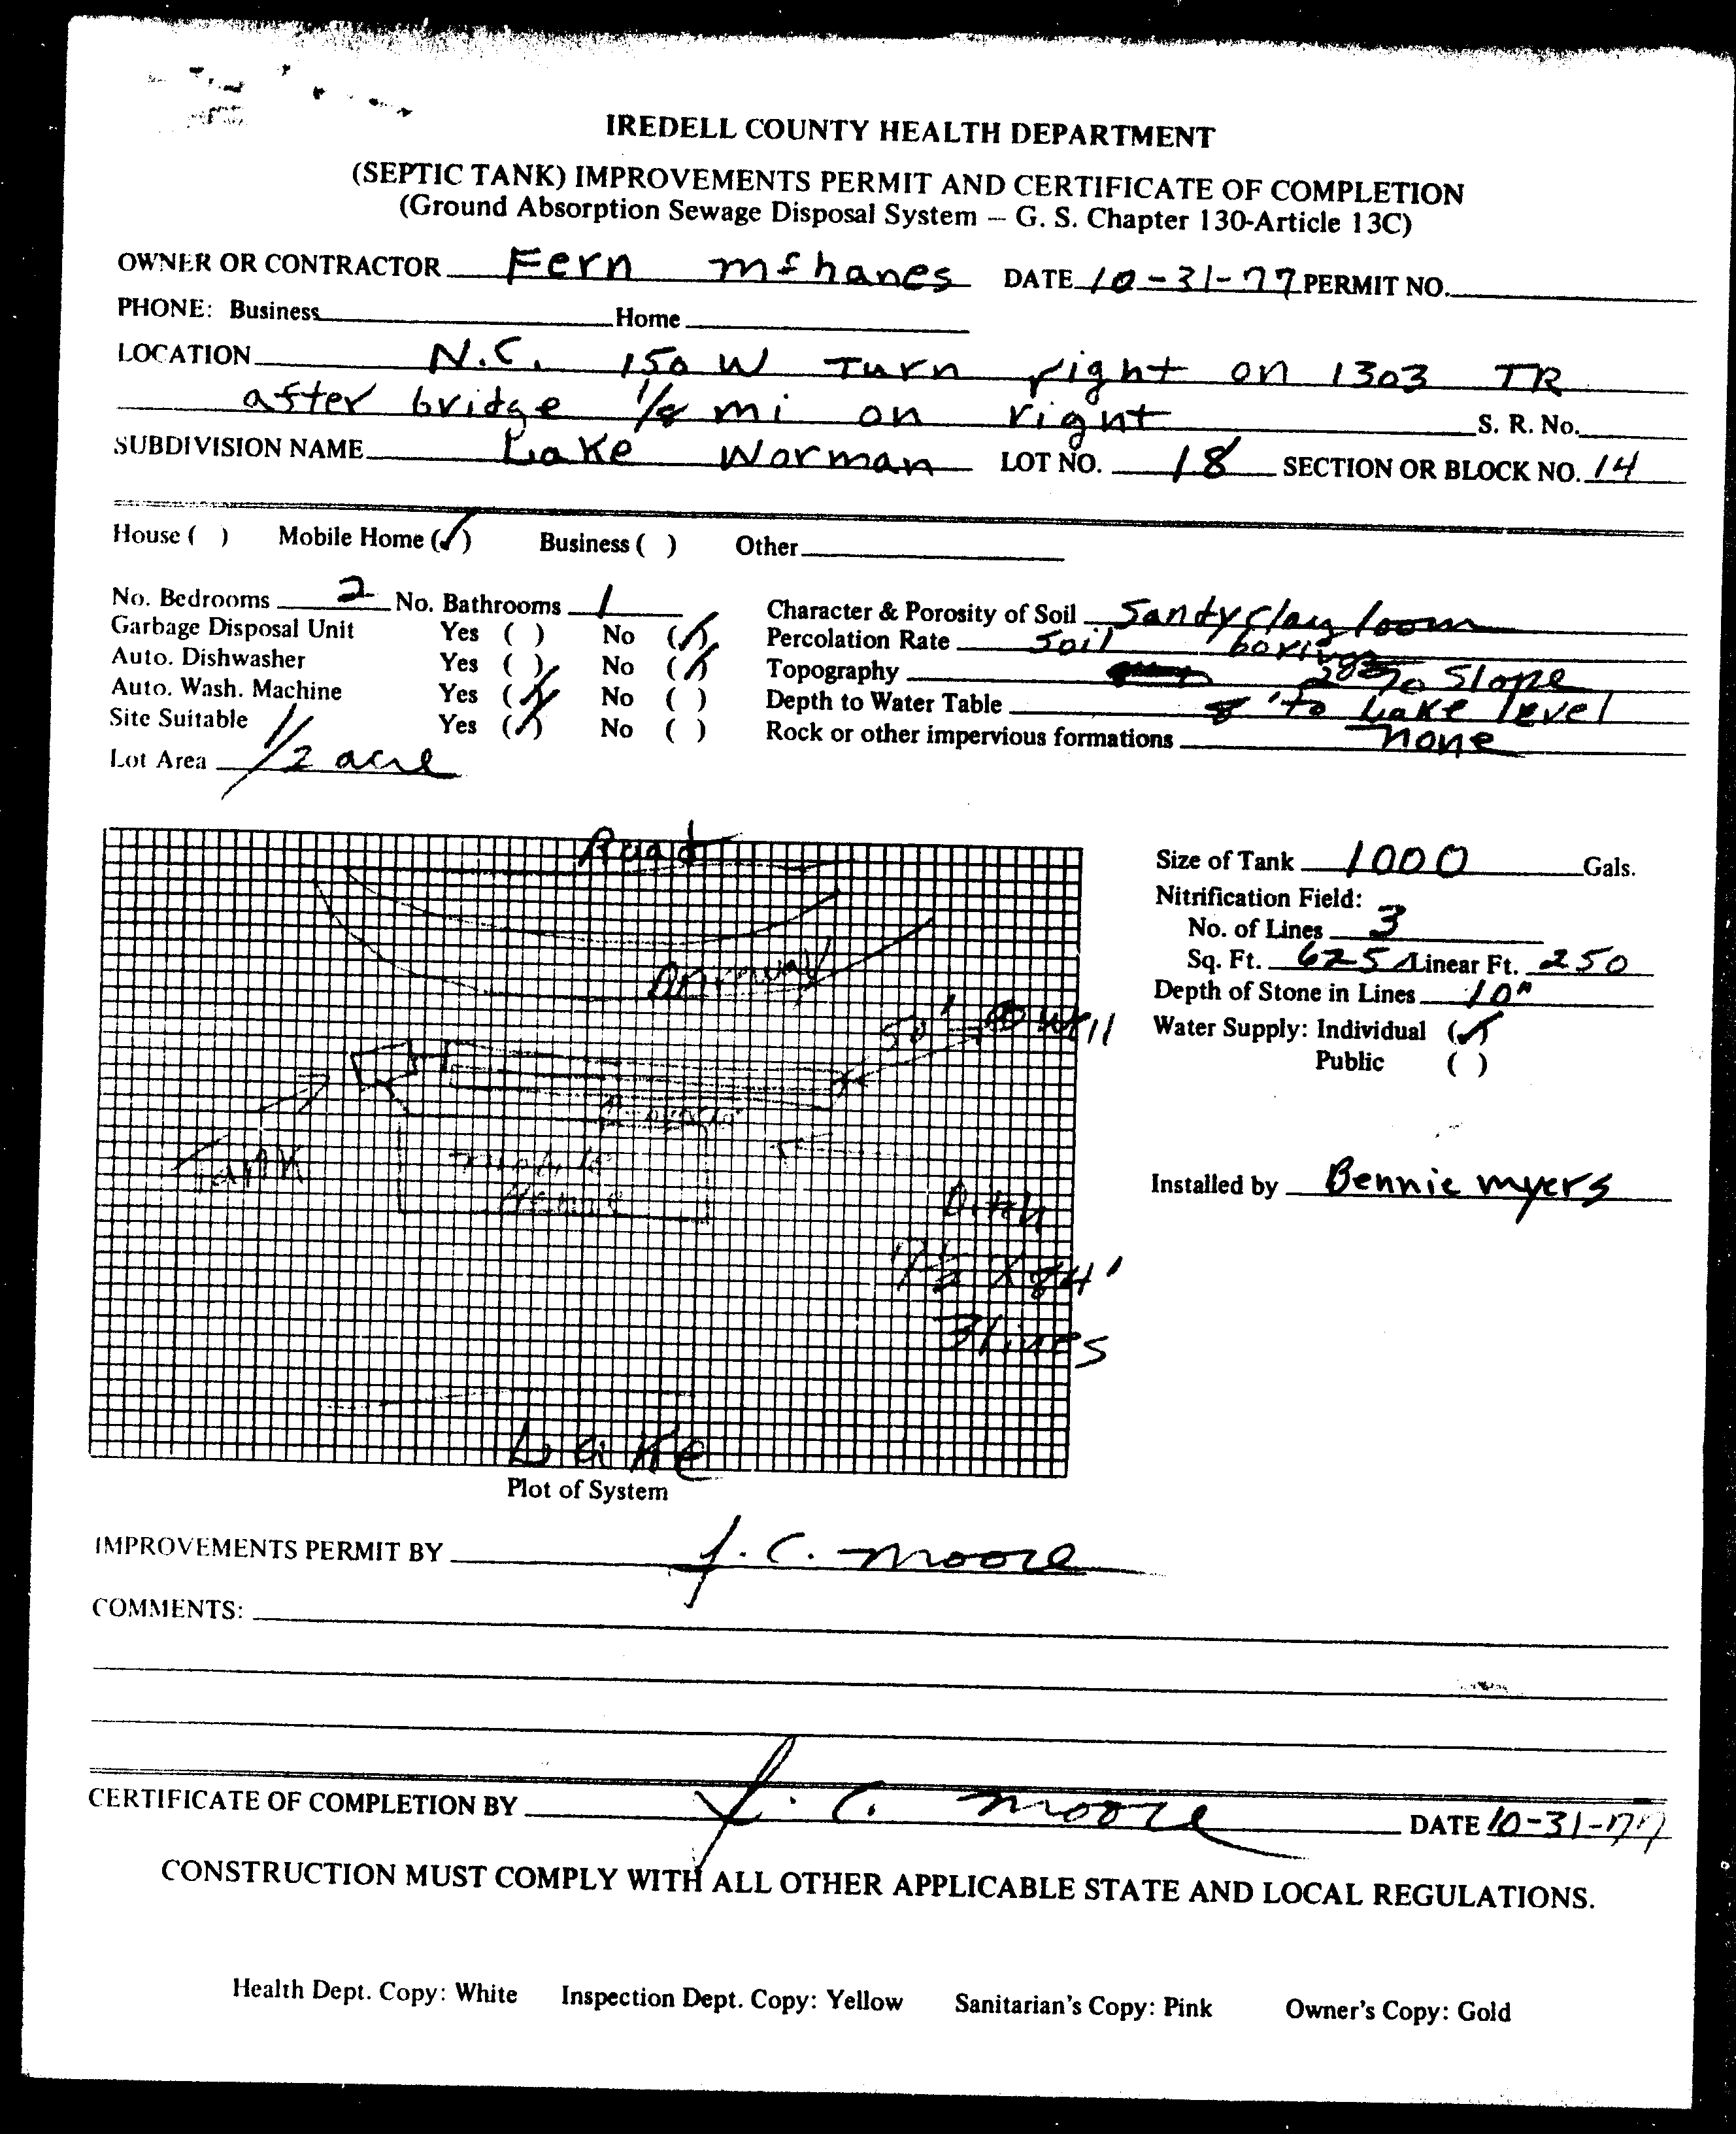 IREDELL COUNTY HEALTH DEPARTMENT
(SEPTIC TANK) IMPROVEMENTS PERMIT AND CERTIFICATE OF COMPLETION
(Ground Absorption Sewage Disposal System – G. S. Chapter 130-Article 13C)
OWNER OR CONTRACTOR Fern DATE 10-31-77 PERMIT NO.
PHONE: Business Home
LOCATION N.C. 150 W Turn right on 1303 TR
after bridge 1/8 mi on right S. R. No.
SUBDIVISION NAME Lake Norman LOT NO. 18 SECTION OR BLOCK NO. 14
House ( ) Mobile Home (✓) Business ( ) Other
No. Bedrooms 2 No. Bathrooms 1
Garbage Disposal Unit Yes ( ) No (✓)
Auto. Dishwasher Yes ( ) No (✓)
Auto. Wash. Machine Yes (✓) No ( )
Site Suitable Yes (✓) No ( )
Lot Area 1/2 acre
Character & Porosity of Soil Sandy clay loom
Percolation Rate Soil borings
Topography % Slope
Depth to Water Table 8' to Lake level
Rock or other impervious formations none
Road
Driveway
50' well
Tank
Mobile
Home
Ditch
X 84'
3 lines
Lake
Plot of System
Size of Tank 1000 Gals.
Nitrification Field:
No. of Lines 3
Sq. Ft. 625 Linear Ft. 250
Depth of Stone in Lines 10"
Water Supply: Individual (✓)
Public ( )
Installed by Bennie Myers
IMPROVEMENTS PERMIT BY J. C. Moore
COMMENTS:
CERTIFICATE OF COMPLETION BY J. C. Moore DATE 10-31-77
CONSTRUCTION MUST COMPLY WITH ALL OTHER APPLICABLE STATE AND LOCAL REGULATIONS.
Health Dept. Copy: White Inspection Dept. Copy: Yellow Sanitarian's Copy: Pink Owner's Copy: Gold